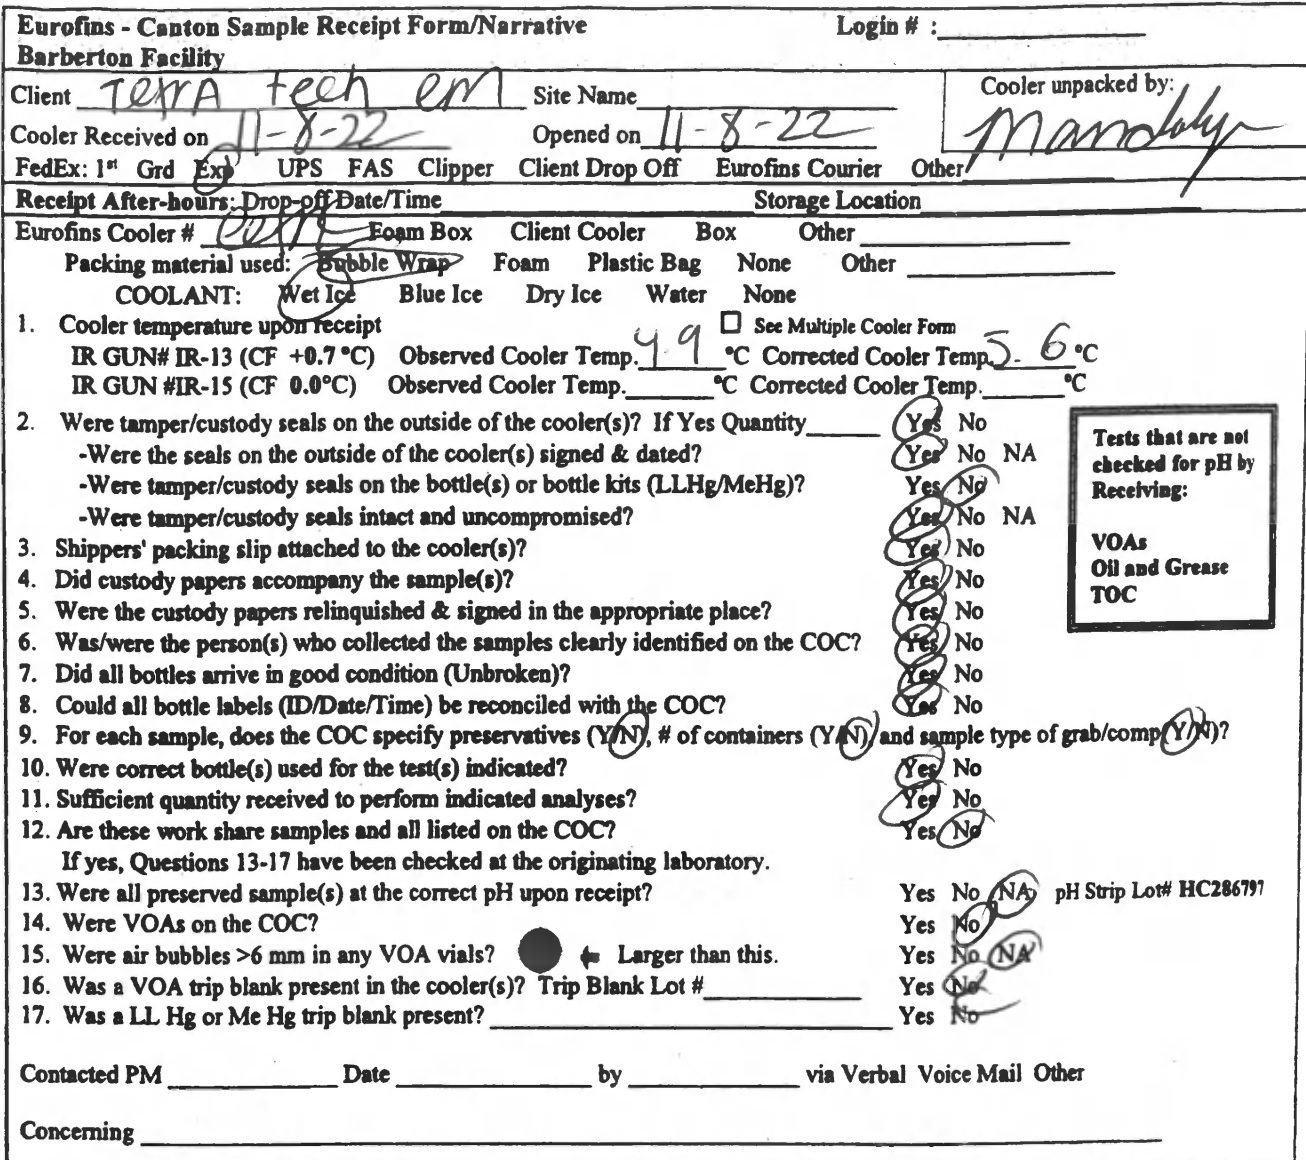 Eurofins - Canton Sample Receipt Form/Narrative Login # :
Barberton Facility
Client Terra tech em Site Name Cooler unpacked by:
Cooler Received on 11-8-22 Opened on 11-8-22
FedEx: 1st Grd Exp UPS FAS Clipper Client Drop Off Eurofins Courier Other
Receipt After-hours: Drop-off Date/Time Storage Location
Eurofins Cooler # Foam Box Client Cooler Box Other
Packing material used: Bubble Wrap Foam Plastic Bag None Other
COOLANT: Wet Ice Blue Ice Dry Ice Water None
1. Cooler temperature upon receipt ☐ See Multiple Cooler Form
IR GUN# IR-13 (CF +0.7 °C) Observed Cooler Temp. 4.9 °C Corrected Cooler Temp. 5.6 °C
IR GUN #IR-15 (CF 0.0°C) Observed Cooler Temp. °C Corrected Cooler Temp. °C
2. Were tamper/custody seals on the outside of the cooler(s)? If Yes Quantity Yes No
-Were the seals on the outside of the cooler(s) signed & dated? Yes No NA
-Were tamper/custody seals on the bottle(s) or bottle kits (LLHg/MeHg)? Yes No
-Were tamper/custody seals intact and uncompromised? Yes No NA
3. Shippers' packing slip attached to the cooler(s)? Yes No
4. Did custody papers accompany the sample(s)? Yes No
5. Were the custody papers relinquished & signed in the appropriate place? Yes No
6. Was/were the person(s) who collected the samples clearly identified on the COC? Yes No
7. Did all bottles arrive in good condition (Unbroken)? Yes No
8. Could all bottle labels (ID/Date/Time) be reconciled with the COC? Yes No
Tests that are not
checked for pH by
Receiving:
VOAs
Oil and Grease
TOC
9. For each sample, does the COC specify preservatives (Y/N), # of containers (Y/N), and sample type of grab/comp(Y/N)?
10. Were correct bottle(s) used for the test(s) indicated? Yes No
11. Sufficient quantity received to perform indicated analyses? Yes No
12. Are these work share samples and all listed on the COC? Yes No
If yes, Questions 13-17 have been checked at the originating laboratory.
13. Were all preserved sample(s) at the correct pH upon receipt? Yes No NA pH Strip Lot# HC286797
14. Were VOAs on the COC? Yes No
15. Were air bubbles >6 mm in any VOA vials? Larger than this. Yes No NA
16. Was a VOA trip blank present in the cooler(s)? Trip Blank Lot # Yes No
17. Was a LL Hg or Me Hg trip blank present? Yes No
Contacted PM Date by via Verbal Voice Mail Other
Concerning